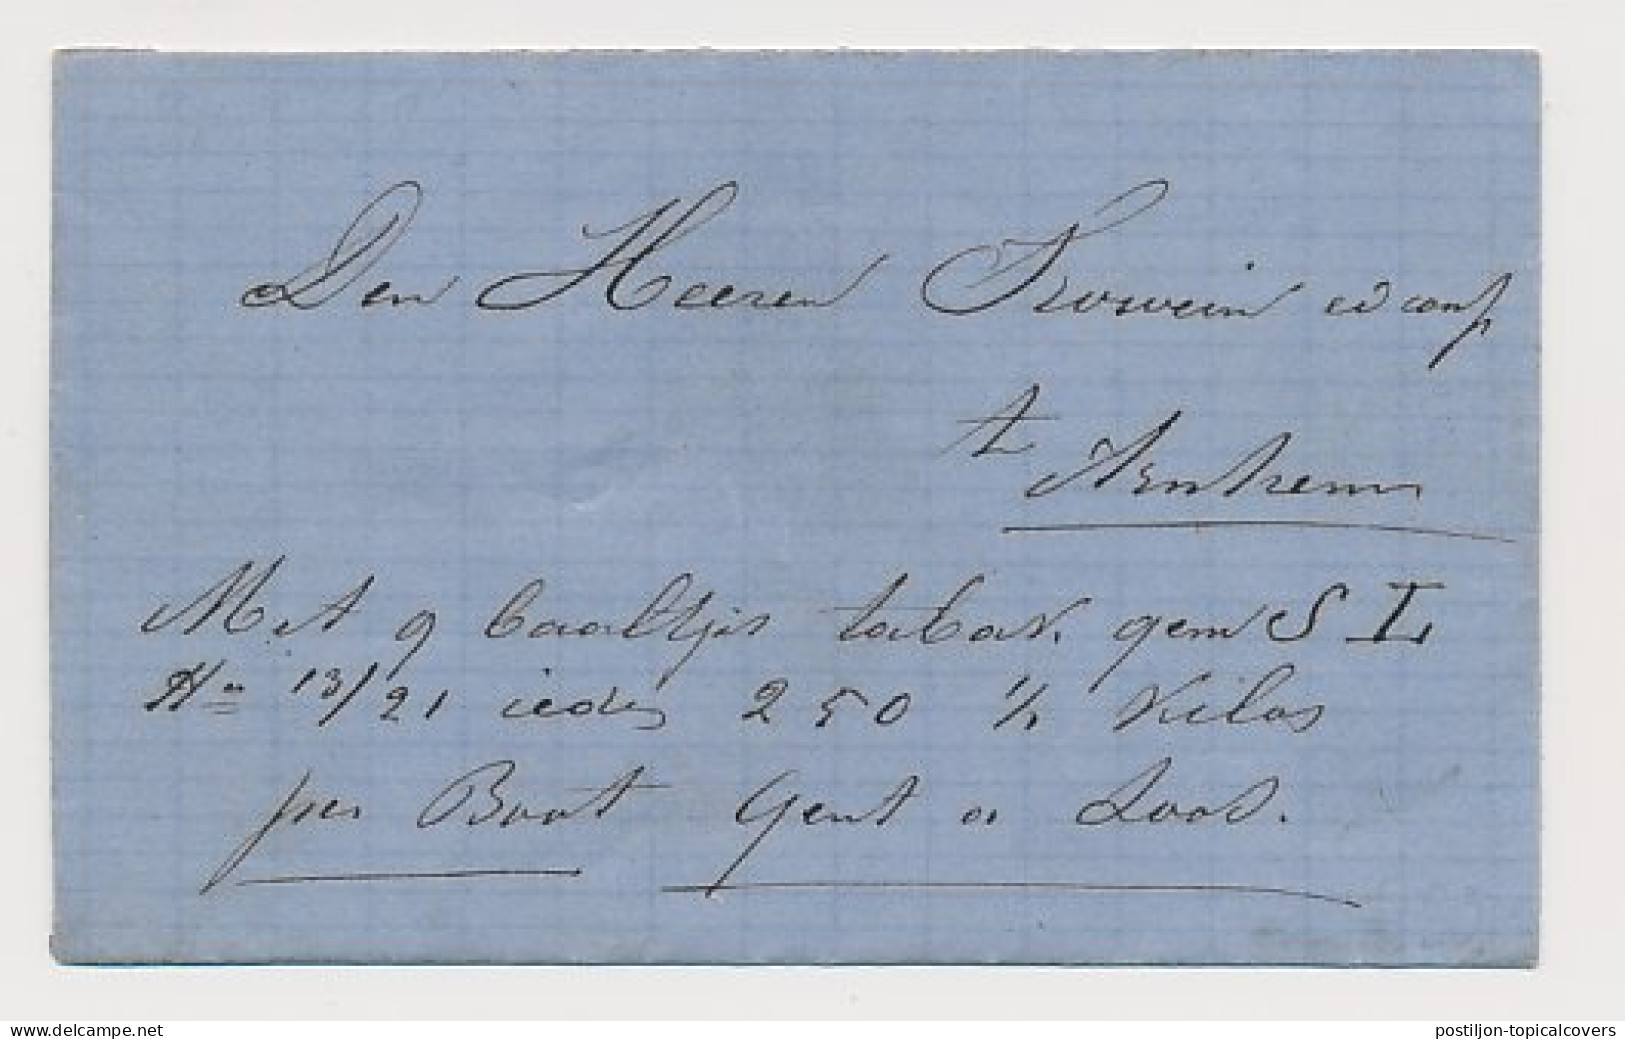 Den Heeren Frowein en Comp
te
Arnhem
Met 9 baaltjes tabak. gem S L
No 13/21 ieder 250 ½ Kilos
per Boot Gent & Loos.
www.delcampe.net
postiljon-topicalcovers